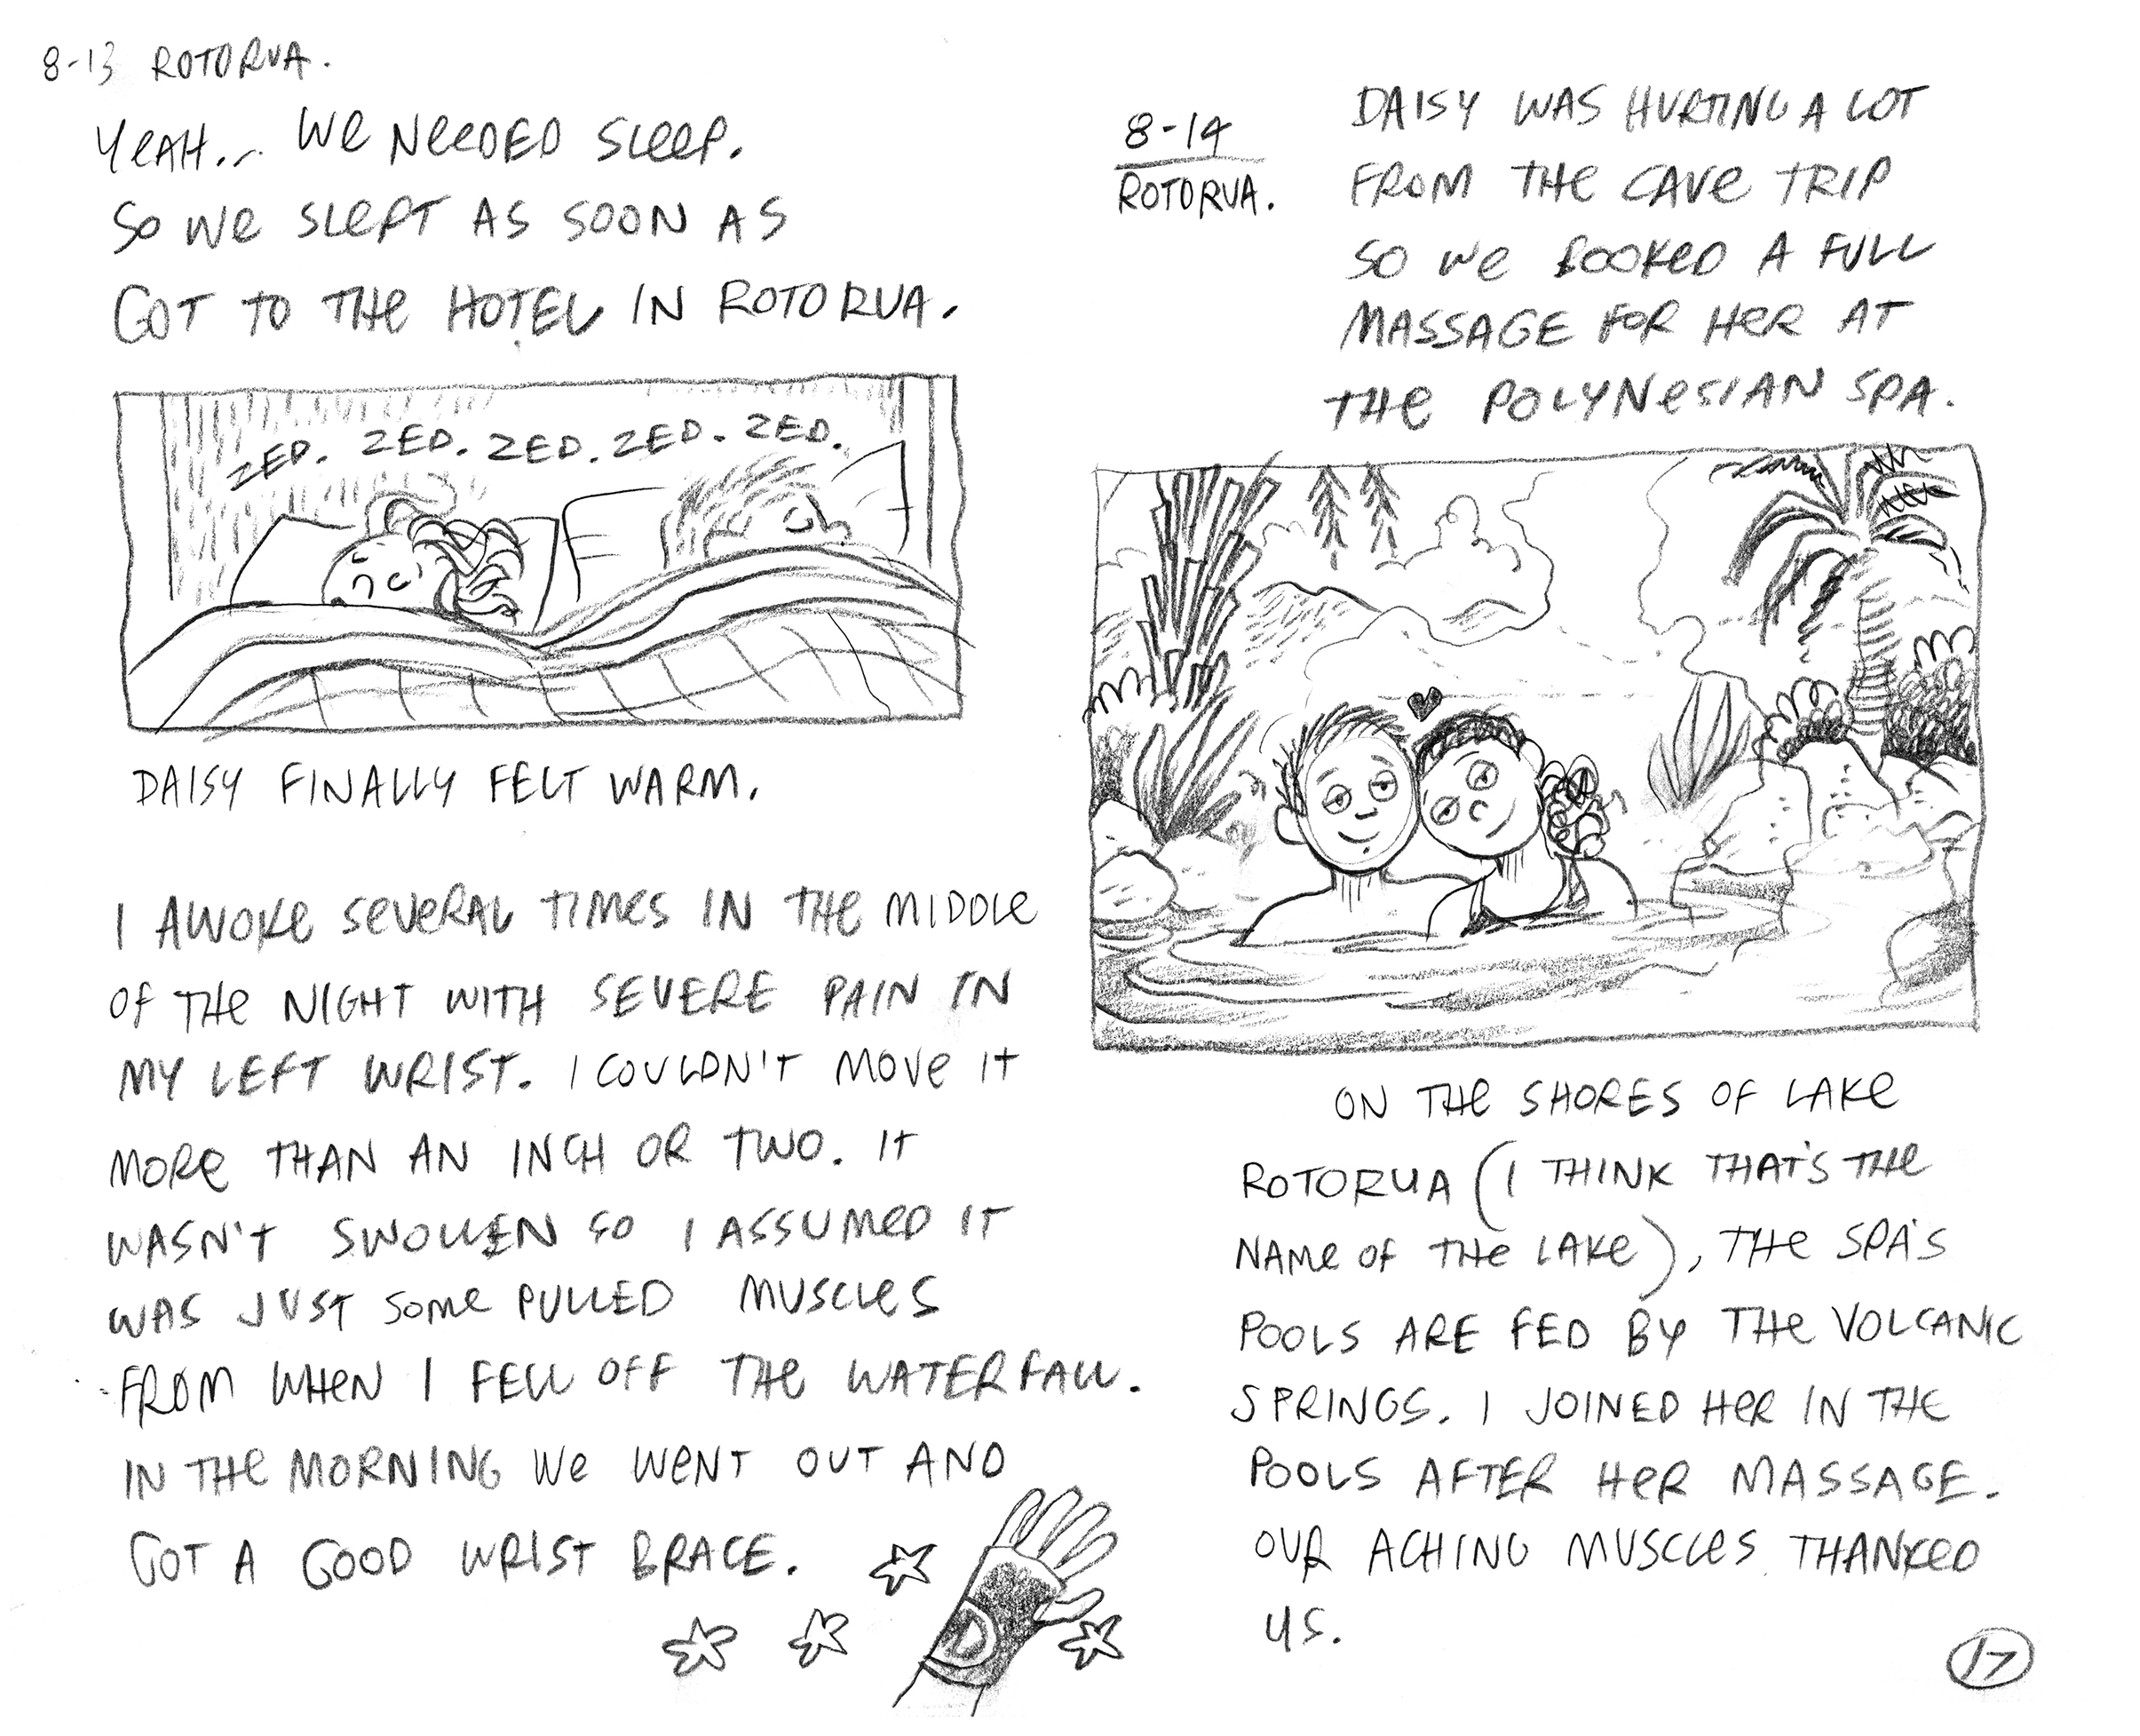 8-13 ROTORUA.
YEAH... WE NEEDED SLEEP.
SO WE SLEPT AS SOON AS
GOT TO THE HOTEL IN ROTORUA.
ZED. ZED. ZED. ZED. ZED.
DAISY FINALLY FELT WARM.
I AWOKE SEVERAL TIMES IN THE MIDDLE
OF THE NIGHT WITH SEVERE PAIN IN
MY LEFT WRIST. I COULDN'T MOVE IT
MORE THAN AN INCH OR TWO. IT
WASN'T SWOLLEN SO I ASSUMED IT
WAS JUST SOME PULLED MUSCLES
FROM WHEN I FELL OFF THE WATERFALL.
IN THE MORNING WE WENT OUT AND
GOT A GOOD WRIST BRACE.
D
8-14
ROTORUA.
DAISY WAS HURTING A LOT
FROM THE CAVE TRIP
SO WE BOOKED A FULL
MASSAGE FOR HER AT
THE POLYNESIAN SPA.
ON THE SHORES OF LAKE
ROTORUA (I THINK THAT'S THE
NAME OF THE LAKE), THE SPA'S
POOLS ARE FED BY THE VOLCANIC
SPRINGS. I JOINED HER IN THE
POOLS AFTER HER MASSAGE.
OUR ACHING MUSCLES THANKED
US.
17